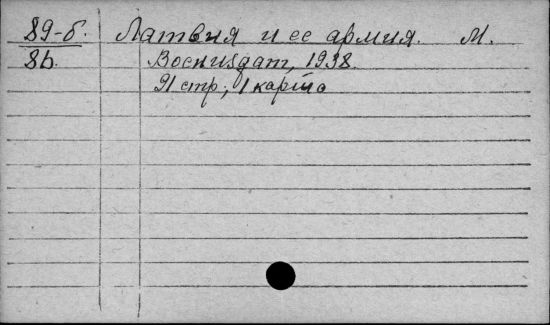 89-б. Латвия и ее армия. М.
8b. Воениздат, 1938.
91 стр; 1 карта